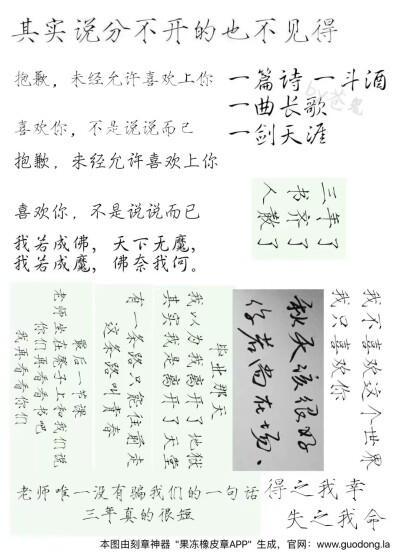 其实说分不开的也不见得
抱歉，未经允许喜欢上你
喜欢你，不是说说而已
抱歉，未经允许喜欢上你
喜欢你，不是说说而已
我若成佛，天下无魔，
我若成魔，佛奈我何。
一篇诗 一斗酒
一曲长歌
一剑天涯
by苍鬼
三年了
书齐了
人散了
我不喜欢这个世界
我只喜欢你
秋天该很好
你若尚在场、
毕业那天
我以为我离开了地狱
其实我是离开了天堂
有一条路只能往前走
这条路叫青春
最后一节课
老师坐在凳子上和我们说
你们再看看书吧
我再看看你们
老师唯一没有骗我们的一句话
三年真的很短
得之我幸
失之我命
本图由刻章神器“果冻橡皮章APP”生成，官网：www.guodong.la